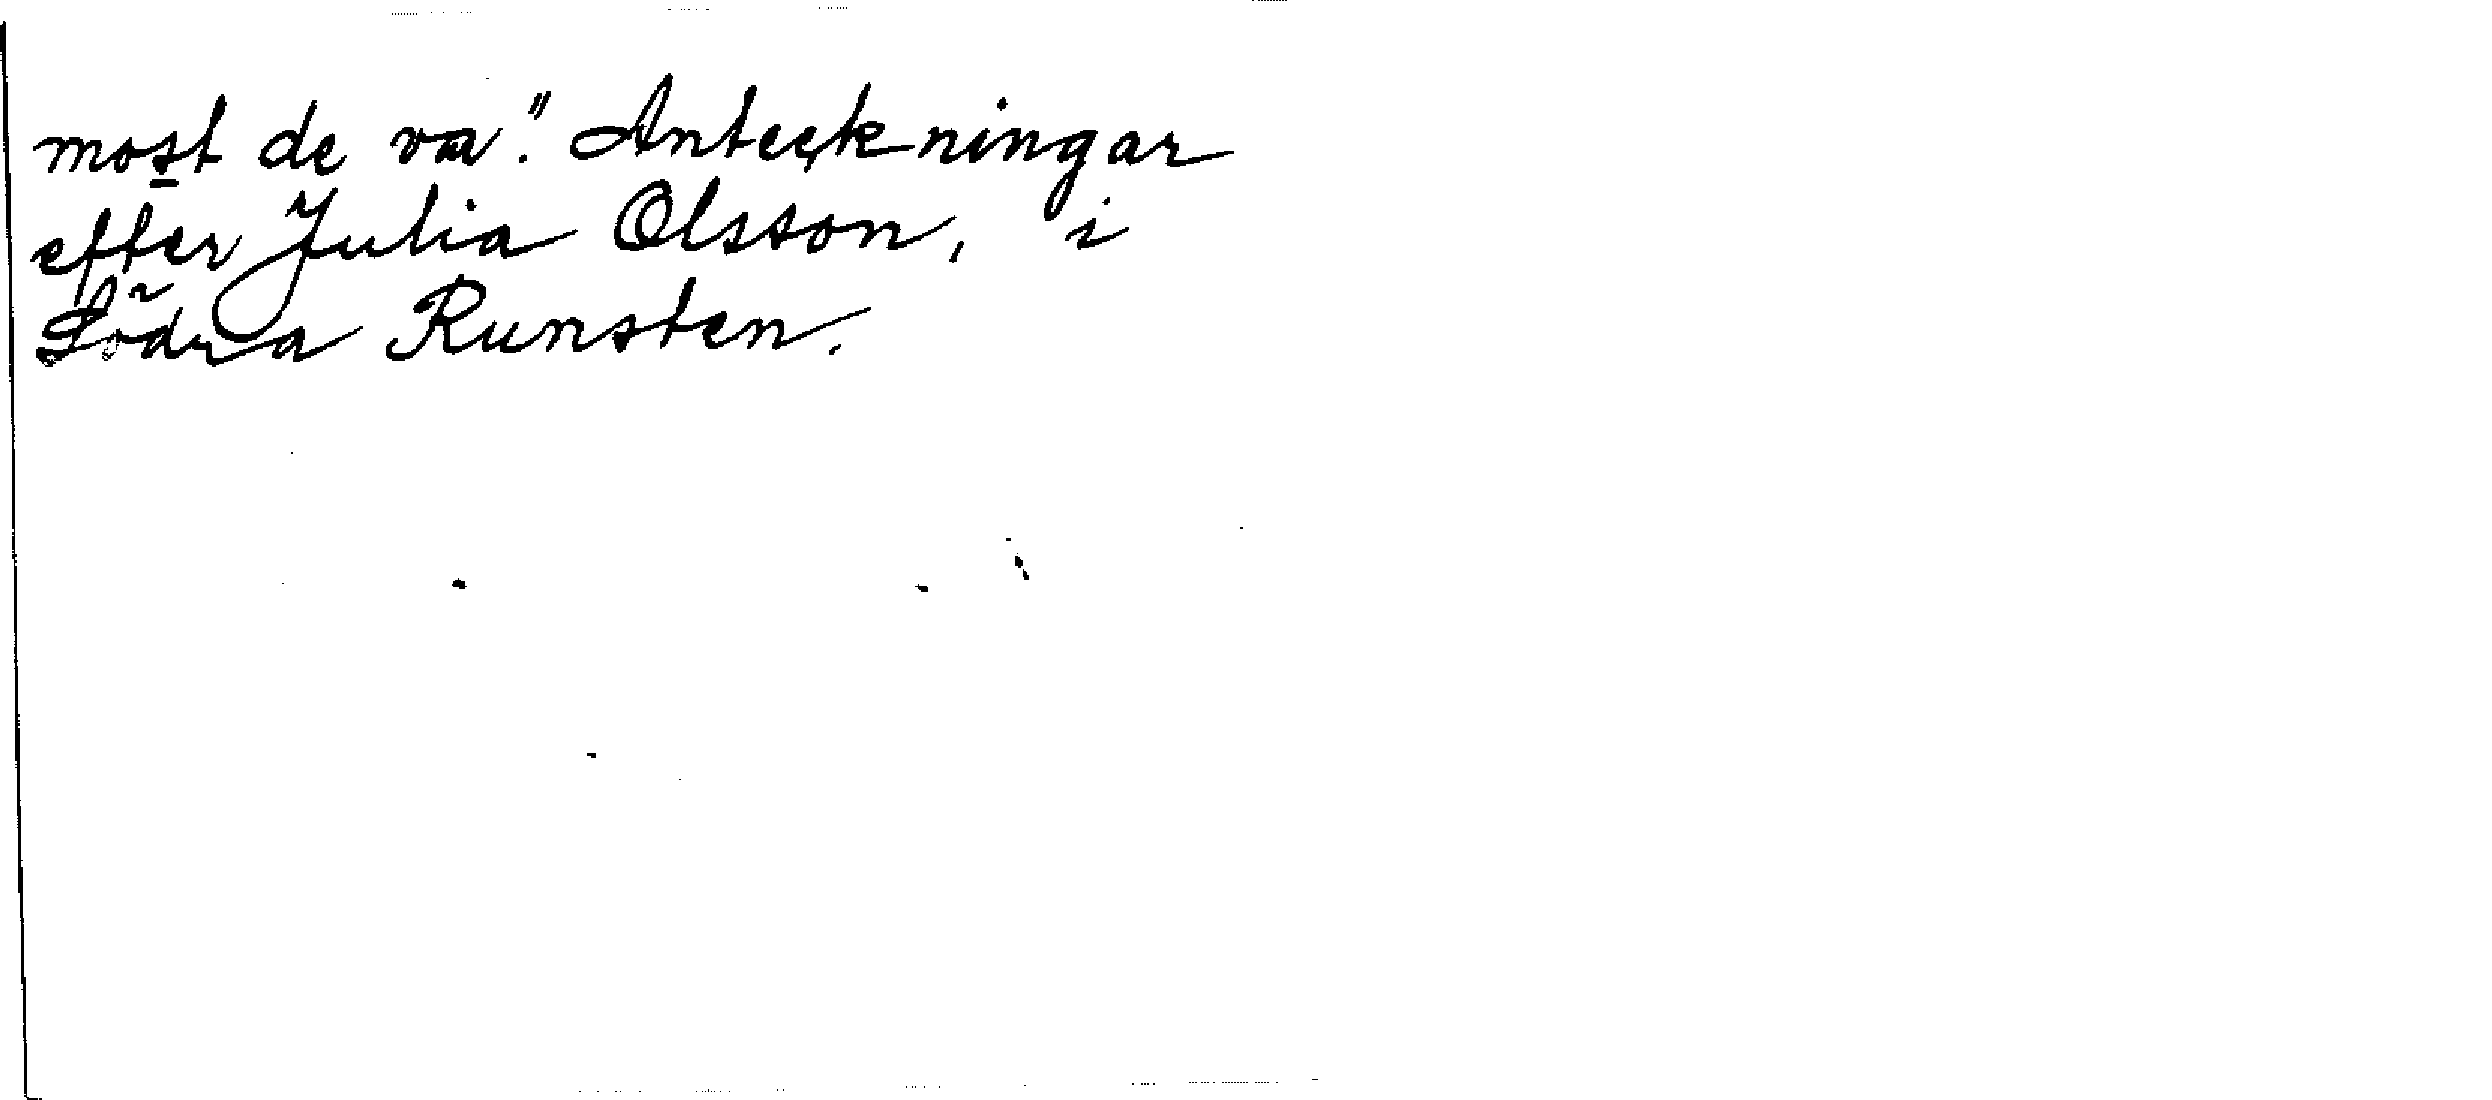 most de va". Anteckningar
efter Julia Olsson, i
Södra Runsten.